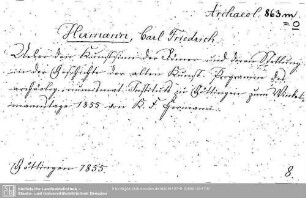 Archaeol. 863.m
=0
Hermann, Carl Friedrich
Ueber den Kunstsinn der Römer und deren Stellung
in der Geschichte der alten Kunst. Programm des
archäolog.-numismat. Instituts zu Göttingen zum Winkel-
mannstage 1855 von K. F. Hermann.
Göttingen 1855.
8.
Sächsische Landesbibliothek -
Staats- und Universitätsbibliothek Dresden